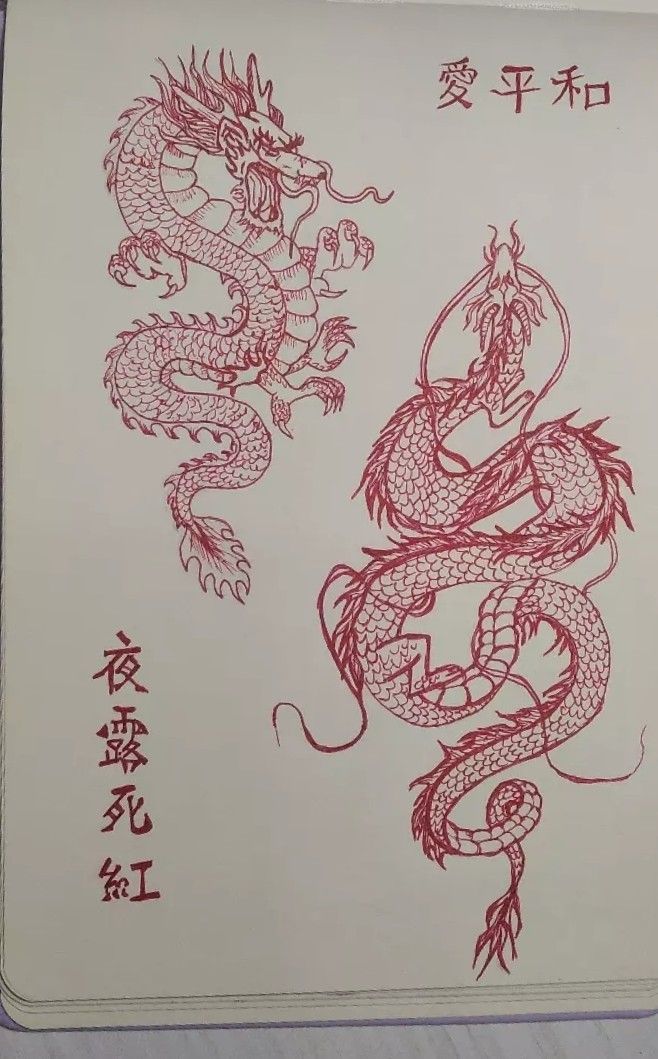 愛平和
夜露死紅